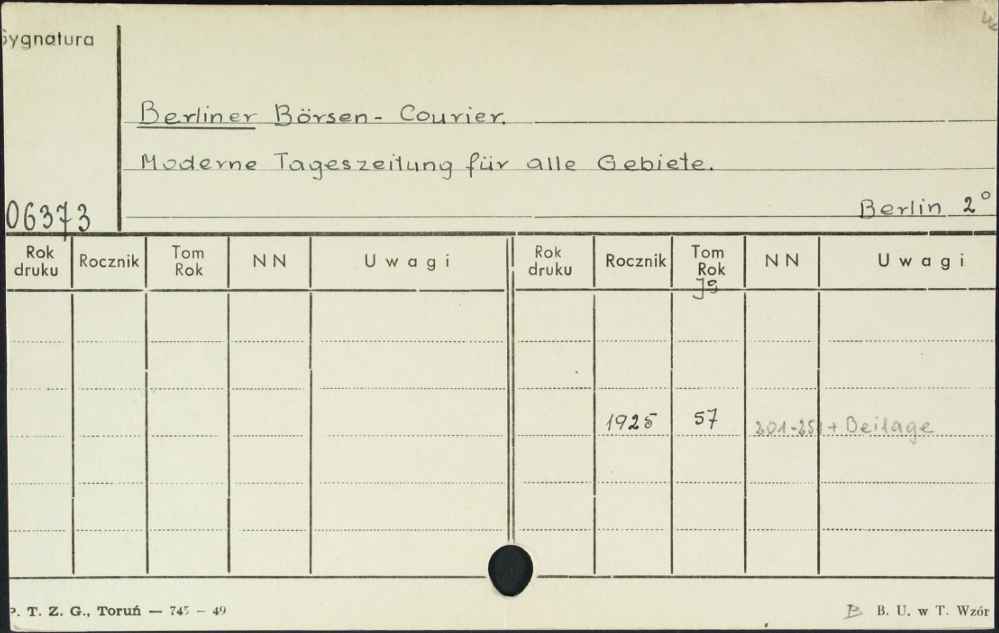 Sygnatura
Berliner Börsen-Courier.
Moderne Tageszeitung für alle Gebiete.
06373
Berlin 2°
Rok druku Rocznik Tom Rok NN Uwagi Rok druku Rocznik Tom Rok NN Uwagi
Jg
1925 57 201-251 + Beilage
P. T. Z. G., Toruń — 745 — 49
B. U. w T. Wzór